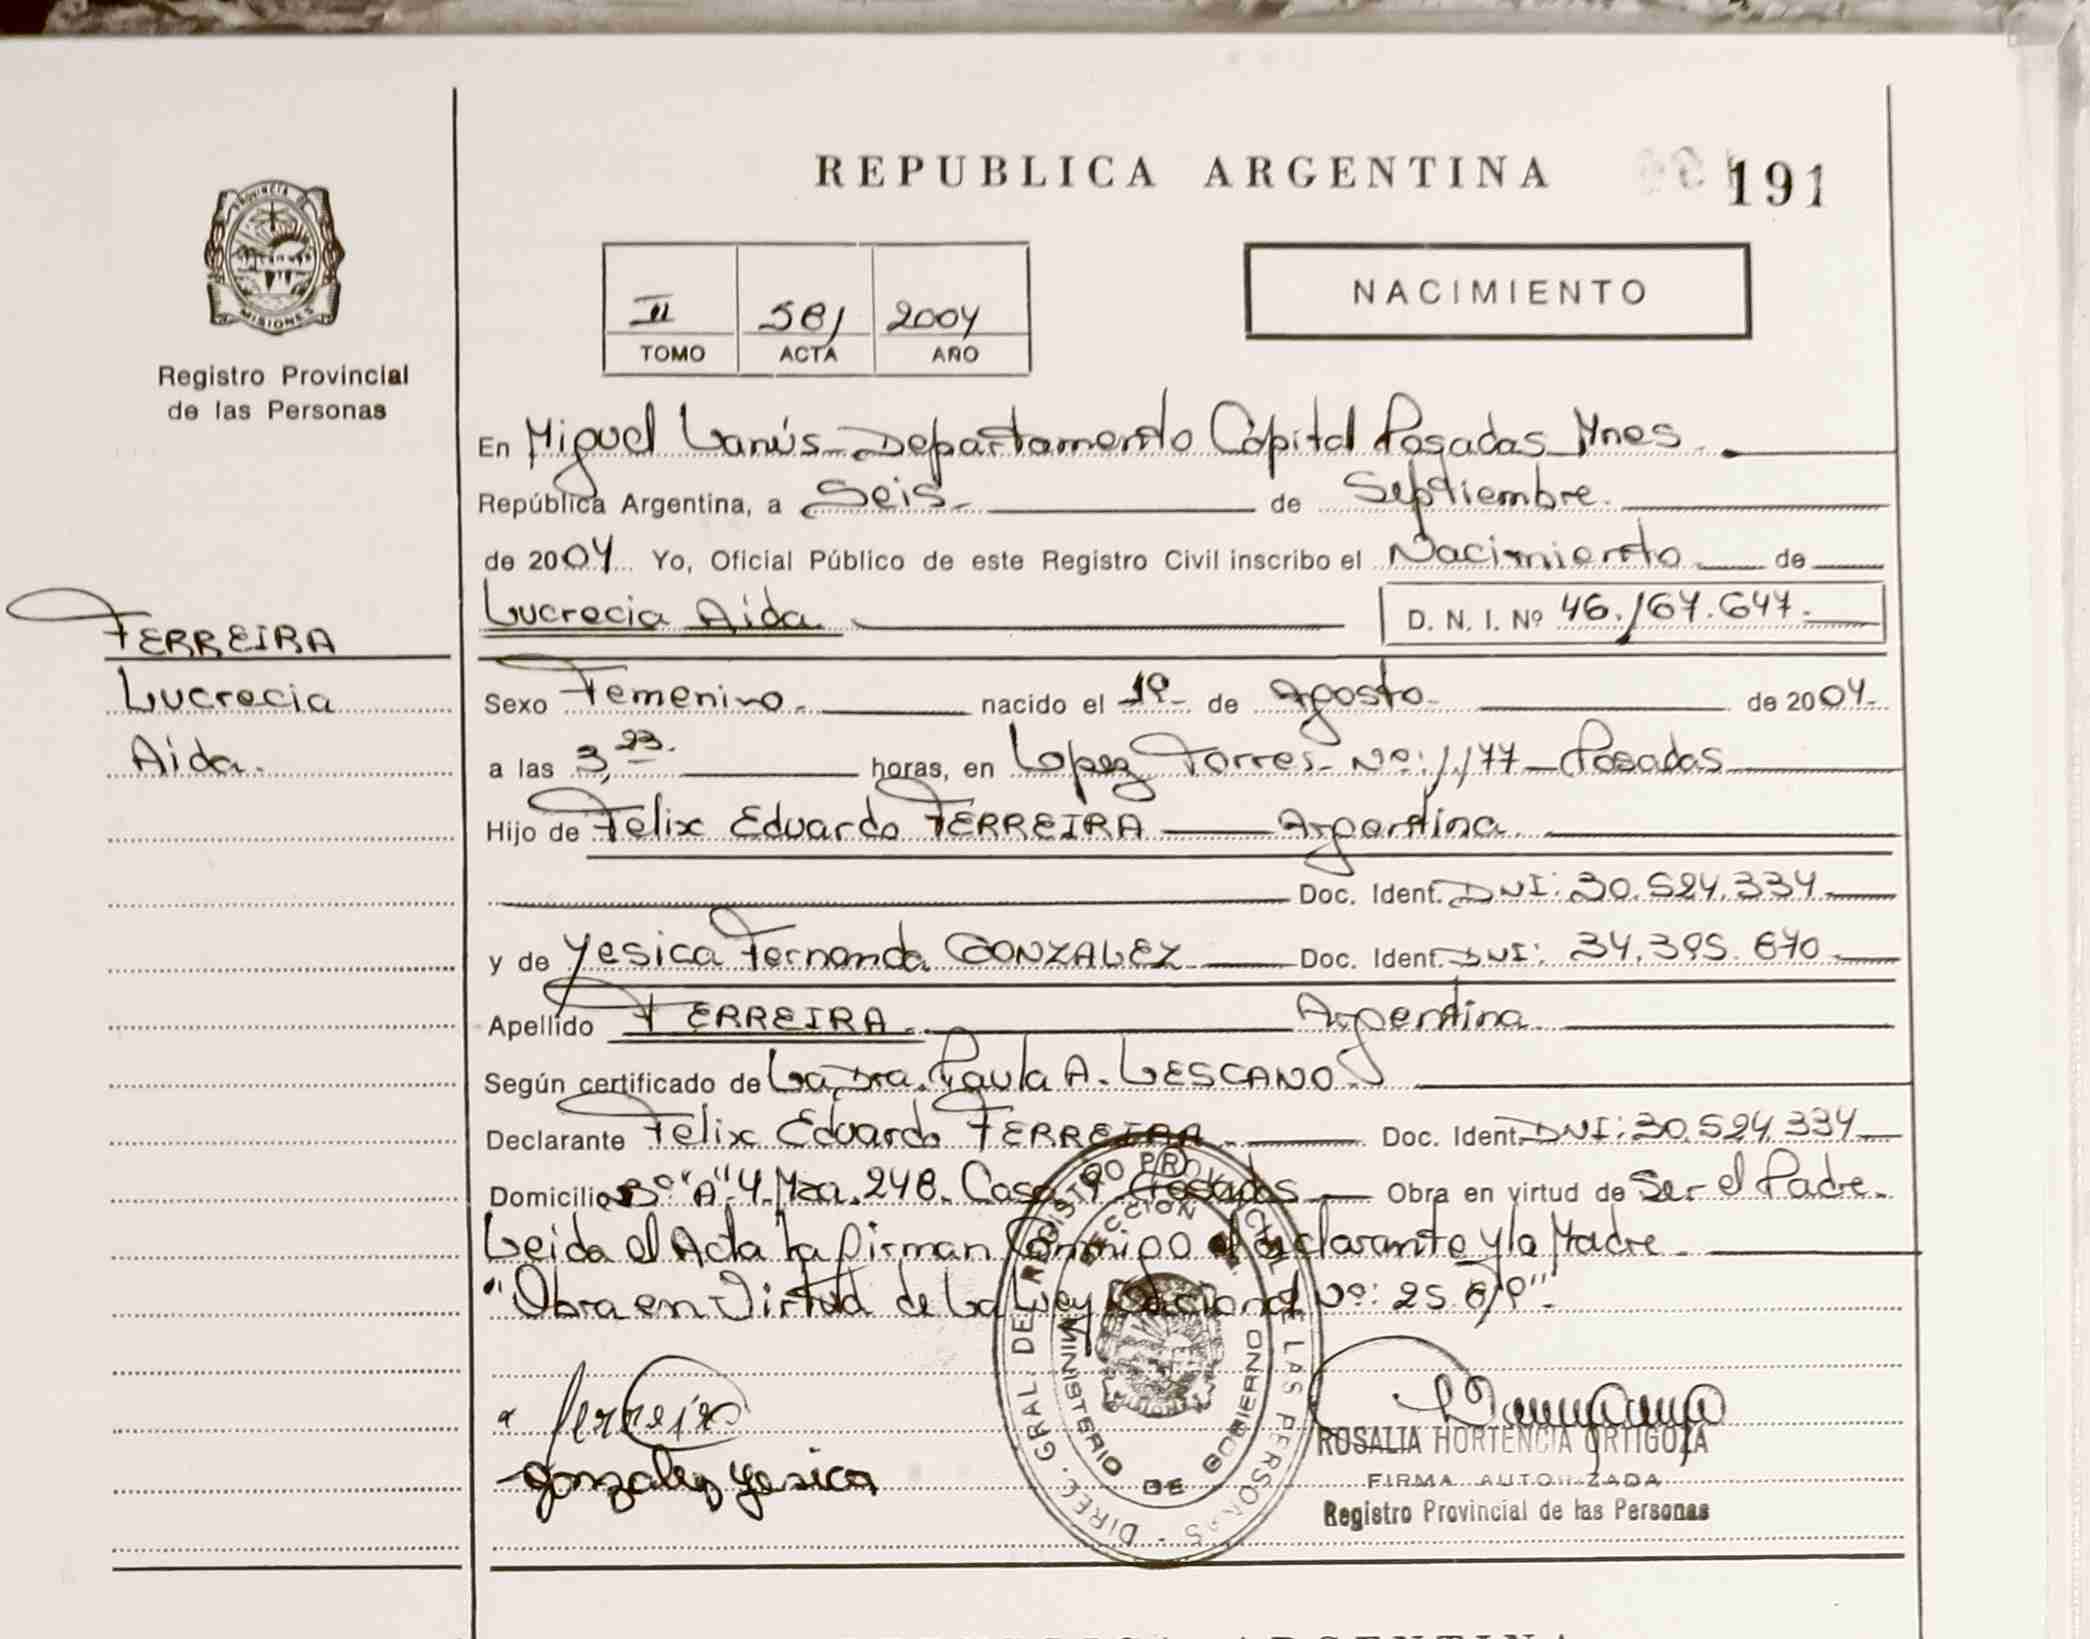 REPUBLICA ARGENTINA
191
PROVINCIA DE
MISIONES
Registro Provincial
de las Personas
II 581 2004
TOMO ACTA AÑO
NACIMIENTO
En Miguel Lanús - Departamento Capital Posadas Mnes.
República Argentina, a Seis de Septiembre.
de 2004. Yo, Oficial Público de este Registro Civil inscribo el Nacimiento de
Lucrecia Aida. D. N. I. Nº 46.167.647.
FERREIRA
Lucrecia
Aida.
Sexo Femenino. nacido el 19 de Agosto de 2004.
a las 3,23. horas, en Lopez Torres Nº: 1.177 - Posadas
Hijo de Felix Eduardo FERREIRA Argentina
Doc. Ident. DNI: 30.524.334
y de Yesica Fernanda GONZALEZ Doc. Ident. DNI: 34.395.670
Apellido FERREIRA. Argentina
Según certificado de La Dra. Paula A. LESCANO
Declarante Felix Eduardo FERREIRA Doc. Ident. DNI: 30.524.334
Domicilio Bº "A" 4. Mza. 248. Casa 9 Posadas Obra en virtud de Ser el Padre.
Leida el Acta la firman Conmigo el declarante y la Madre
"Obra en Virtud de la Ley Nacional Nº: 25.819".
Ferreira
gonzalez yesica
DIREC. GRAL. DE REGISTRO PROVINCIAL DE LAS PERSONAS
DIRECCION
MINISTERIO DE GOBIERNO
ROSALIA HORTENCIA ORTIGOZA
FIRMA AUTORIZADA
Registro Provincial de las Personas